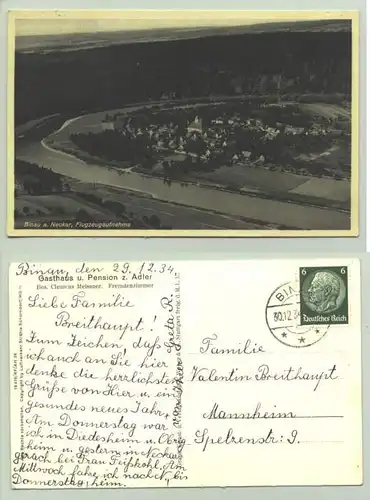 Binau a. Neckar, Flugzeugaufnahme
Binau, den 29.12.34.
Gasthaus u. Pension z. Adler
Bes. Clemens Meissner. Fremdenzimmer
Liebe Familie
Breithaupt!
Zum Zeichen, daß
ich auch an Sie hier
denke die herrlichsten
Grüße von Hier u. ein
gesundes neues Jahr,
Am Donnerstag war
ich in Diedesheim u. Obrig
heim u. gestern in Neckar
gerach bei Frau
Mittwoch fahre ich nach N. bis
Donnerstag, heim
Greta R.
6 6
Deutsches Reich
BIN
30.12.34
Familie
Valentin Breithaupt
Mannheim
Spelzenstr: 9.